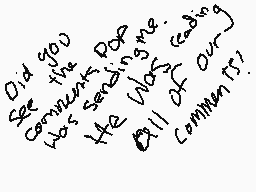 Did you
see the
comments pop
was sending me.
He was reading
all of our
comments!